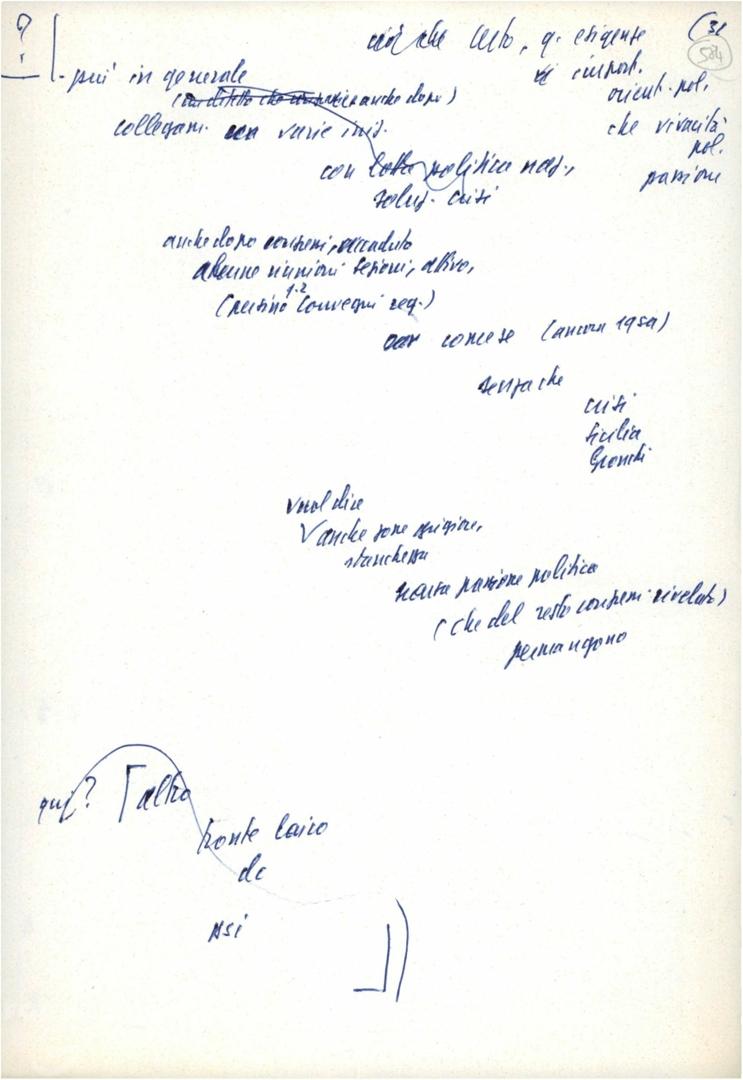 ?
(31
584
ciò che certo, q. esigente
- più in generale
di import.
orient. pol.
(un difetto che anche dopo)
collegam. con varie iniz.
che vivacità
pol.
passione
con lotta politica naz.,
soluz. crisi
anche dopo congressi, accaduto
alcune riunioni sezioni, attivo,
(persino 1-2 convegni reg.)
(ancora 1959)
senza che
crisi
Sicilia
Gronchi
vuol dire
anche zone grigiore,
stanchezza
scarsa passione politica
(che del resto congressi rivelato)
permangono
qui? [altro
fronte laico
dc
psi